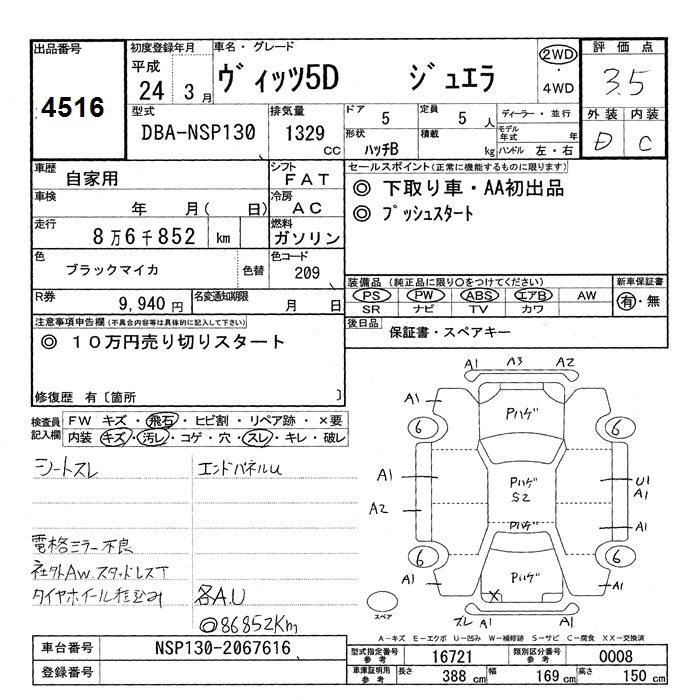 出品番号
4516
初度登録年月
平成
24 3月
車名・グレード
ヴィッツ5D ジュエラ
2WD
・
4WD
評価点
3.5
外装 内装
D C
型式
DBA-NSP130
排気量
1329 cc
ドア 5
定員 5 人
形状 ハッチB
積載 kg
ディーラー・並行
モデル年式 年
ハンドル 左・右
車歴
自家用
シフト
FAT
車検
年 月( 日)
冷房
AC
走行
8万6千852 km
燃料
ガソリン
色
ブラックマイカ
色替
色コード
209
R券 9,940 円
名変通知期限 月 日
セールスポイント(正常に機能するものに限ります)
◎ 下取り車・AA初出品
◎ プッシュスタート
装備品(純正品に限り○をつけてください)
PS PW ABS エアB AW
SR ナビ TV カワ
新車保証書
有・無
後日品
保証書・スペアキー
注意事項申告欄(不具合内容等は具体的に記入して下さい)
◎ 10万円売り切りスタート
修復歴 有〔箇所 〕
検査員記入欄
FW キズ・飛石・ヒビ割・リペア跡・×要
内装 キズ・汚レ・コゲ・穴・スレ・キレ・破レ
シートスレ
エンドパネルU
電格ミラー不良
社外AW.スタッドレスT
タイヤホイール積込み
各A.U
◎86852Km
A1 A3 A2
A1
Pハゲ
6 6
A1
Pハゲ
S2
U1
A1
A2
Pハゲ
A1
6 6
A1
Pハゲ
A1
X
スペア
スレ A1 A1
A-キズ E-エクボ U-凹み W-補修跡 S-サビ C-腐食 XX-交換済
車台番号 NSP130-2067616
登録番号
型式指定番号 参考 16721
類別区分番号 参考 0008
車庫証明用 参考 長さ 388 cm 幅 169 cm 高さ 150 cm